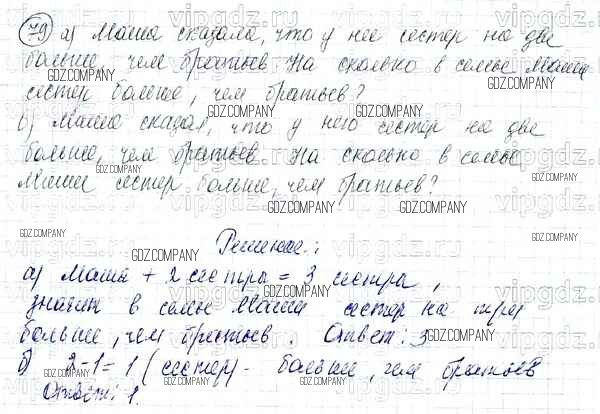 79) а) Маша сказала, что у нее сестер на две
больше, чем братьев. На сколько в семье Маши
сестер больше, чем братьев?
б) Миша сказал, что у него сестер на две
больше, чем братьев. На сколько в семье
Миши сестер больше, чем братьев?
Решение:
а) Маша + 2 сестры = 3 сестры,
значит в семье Маши сестер на три
больше, чем братьев. Ответ: 3
б) 2-1=1 (сестер) - больше, чем братьев
Ответ: 1.